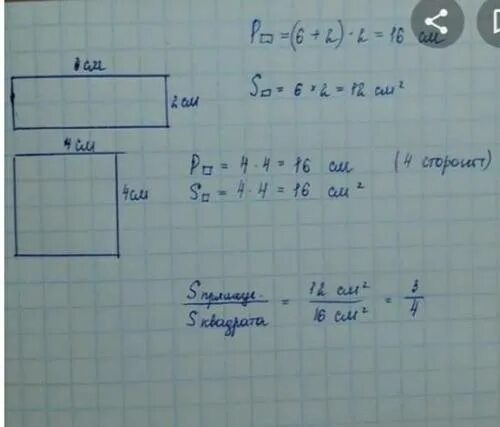 P▭ = (6 + 2) · 2 = 16 см
см
2 см
S▭ = 6 × 2 = 12 см²
4 см
4 см
P□ = 4 · 4 = 16 см (4 стороны)
S□ = 4 · 4 = 16 см²
S прямоуг. / S квадрата = 12 см² / 16 см² = 3/4